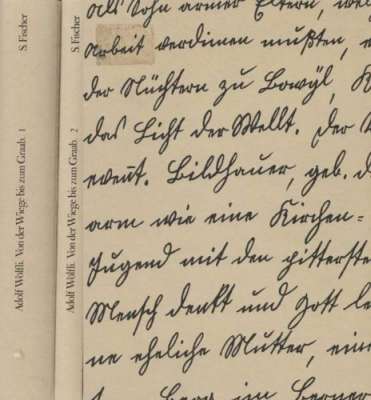 Adolf Wölfli: Von der Wiege bis zum Graab. 1
S. Fischer
Adolf Wölfli: Von der Wiege bis zum Graab. 2
S. Fischer
als Sohn armer Eltern, wel
Arbeit verdienen mußten,
der Nüchtern zu Bowyl, K
das Licht der Wellt. Der V
event. Bildhauer, geb. d
arm wie eine Kirchen=
Jugend mit den bitterste
Mensch denkt und Gott le
ne eheliche Mutter, eine
Berg im Berner